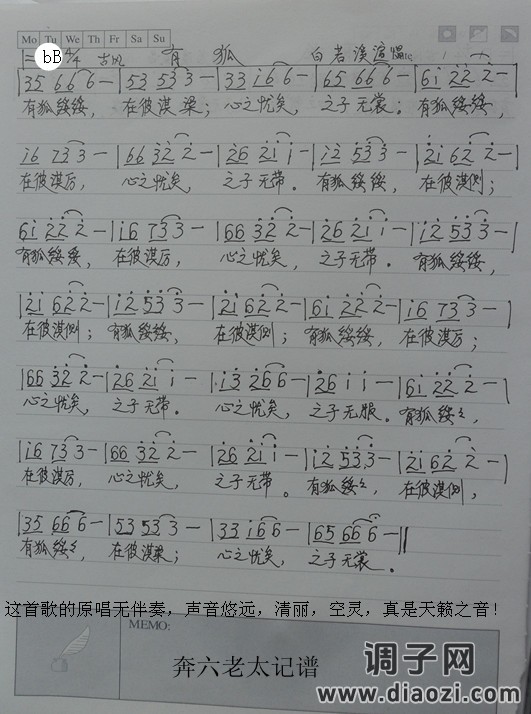 Mo Tu We Th Fr Sa Su
bB 4/4 古风 有 狐 白若溪演唱
|35 66 6-|53 53 3-|33 i6 6-|65 66 6-|6i 22 2-|
有狐绥绥，在彼淇梁；心之忧矣，之子无裳。有狐绥绥，
i6 73 3-|66 32 2-|26 2i i-|i2 53 3-|2i 62 2-|
在彼淇厉，心之忧矣，之子无带。有狐绥绥，在彼淇侧；
6i 22 2-|i6 73 3-|66 32 2-|26 2i i-|i2 53 3-|
有狐绥绥，在彼淇厉，心之忧矣，之子无带。有狐绥绥，
2i 62 2-|i2 53 3-|2i 62 2-|6i 22 2-|i6 73 3-|
在彼淇侧；有狐绥绥，在彼淇侧；有狐绥绥，在彼淇厉；
|66 32 2-|26 2i i-|i3 26 6-|26 i i-|6i 22 2-|
心之忧矣，之子无带。心之忧矣，之子无服。有狐绥々，
|i6 73 3-|66 32 2-|26 2i i-|i2 53 3-|2i 62 2-|
在彼淇厉，心之忧矣，之子无带。有狐绥々，在彼淇侧，
|35 66 6-|53 53 3-|33 i6 6-|65 66 6-||
有狐绥々，在彼淇梁；心之忧矣，之子无裳。
这首歌的原唱无伴奏，声音悠远，清丽，空灵，真是天籁之音！
MEMO:
奔六老太记谱
调子网
www.diaozi.com